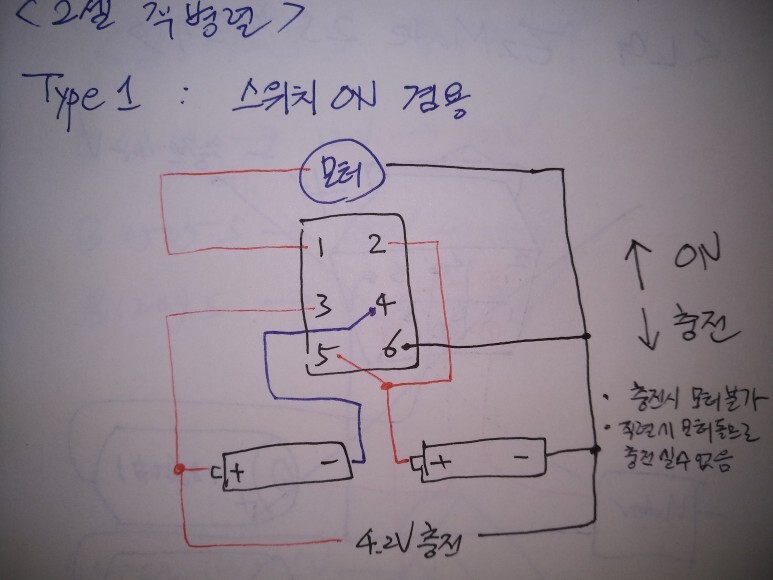 <2셀 직병렬>
Type 1 : 스위치 ON 겸용
모터
1 2
3 4
5 6
↑ ON
↓ 충전
· 충전시 모터불가
· 직렬시 모터돌므로
충전 실수 없음
+ - + -
4.2V 충전